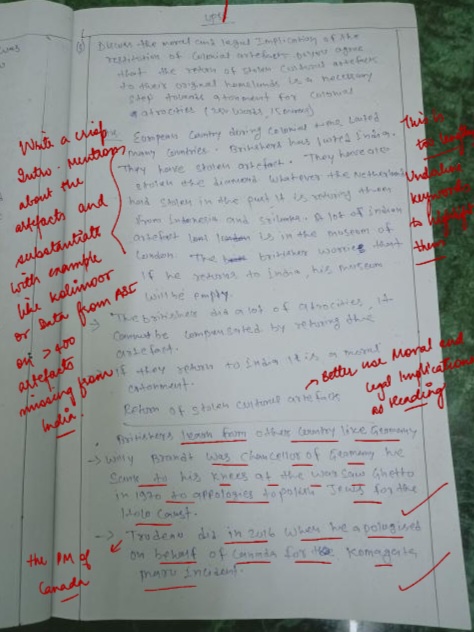 UPS
(8) Discuss the moral and legal Implication of the
restitution of Colonial artefact. Do you agree
that the return of stolen Cultural artefact
to their original homelands is a necessary
step towards atonement for colonial
atrocities (250 words, 15
European Country during Colonial time looted
many Countries. Britishers has looted India.
They have stolen artefact. They have also
stolen the diamond whatever the Netherland
had stolen in the past it is retuning them
from Indonesia and Srilanka. A lot of Indian
artefact is in the museum of
London. The britisher worries that
If he returns to India, his museum
will be empty.
→ The britisher did a lot of atrocities, It
Cannot be compensated by retuning the
artefact.
If they return to India It is a moral
Return of stolen Cultural artefact
• Britishers learn from other Country like Germany
→ Willy Brandt was Chancellor of Germany he
to his knees at the Warsaw Ghetto
in 1970 to appologies to polish Jews for the
Holo Caust.
→ Trudeau did in 2016 when he apologised
on behalf of Canada for the Komagata
maru Incident.
Write a crisp
Intro. Mention
about the
artefacts and
substantiate
with example
like Kohinoor
or Data from ASI
on > 400
artefacts
missing from
India.
This is
too
Underline
keywords
to highlight
them
→ Better use Moral and
legal Implications
as Heading
the PM of
Canada